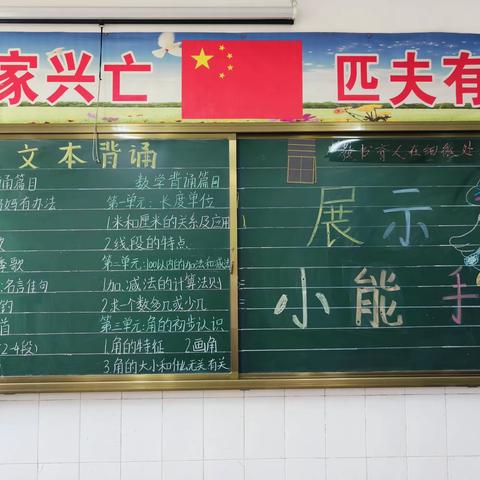 家兴亡 匹夫有
文本背诵
诵篇目
妈有办法
季歌
名言佳句
钓
首
(2-4段)
数学背诵篇目
第一单元:长度单位
1米和厘米的关系及应用
2线段的特点
第二单元:100以内的加法和减法
1加、减法的计算法则
2求一个数多几或少几
第三单元:角的初步认识
1角的特征 2画角
3角的大小和什么无关有关
教书育人在细微处
展示
小能手